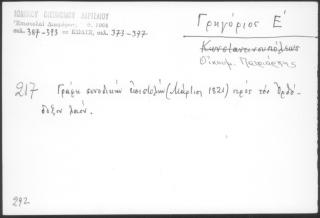 ΙΩΑΝΝΟΥ ΟΙΚΟΝΟΜΟΥ ΛΑΡΙΣΑΙΟΥ
Ἐπιστολαὶ Διαφόρων, 1964
σελ. 387-393 σελ. 373-377
Γρηγόριος Ε΄
Κωνσταντινουπόλεως
Οἰκουμ. Πατριάρχης
217 Γράφει συνοδικὴν ἐπιστολὴν (Μάρτιον 1821) πρὸς τὸν Ὀρθό-
δοξον λαόν.
292